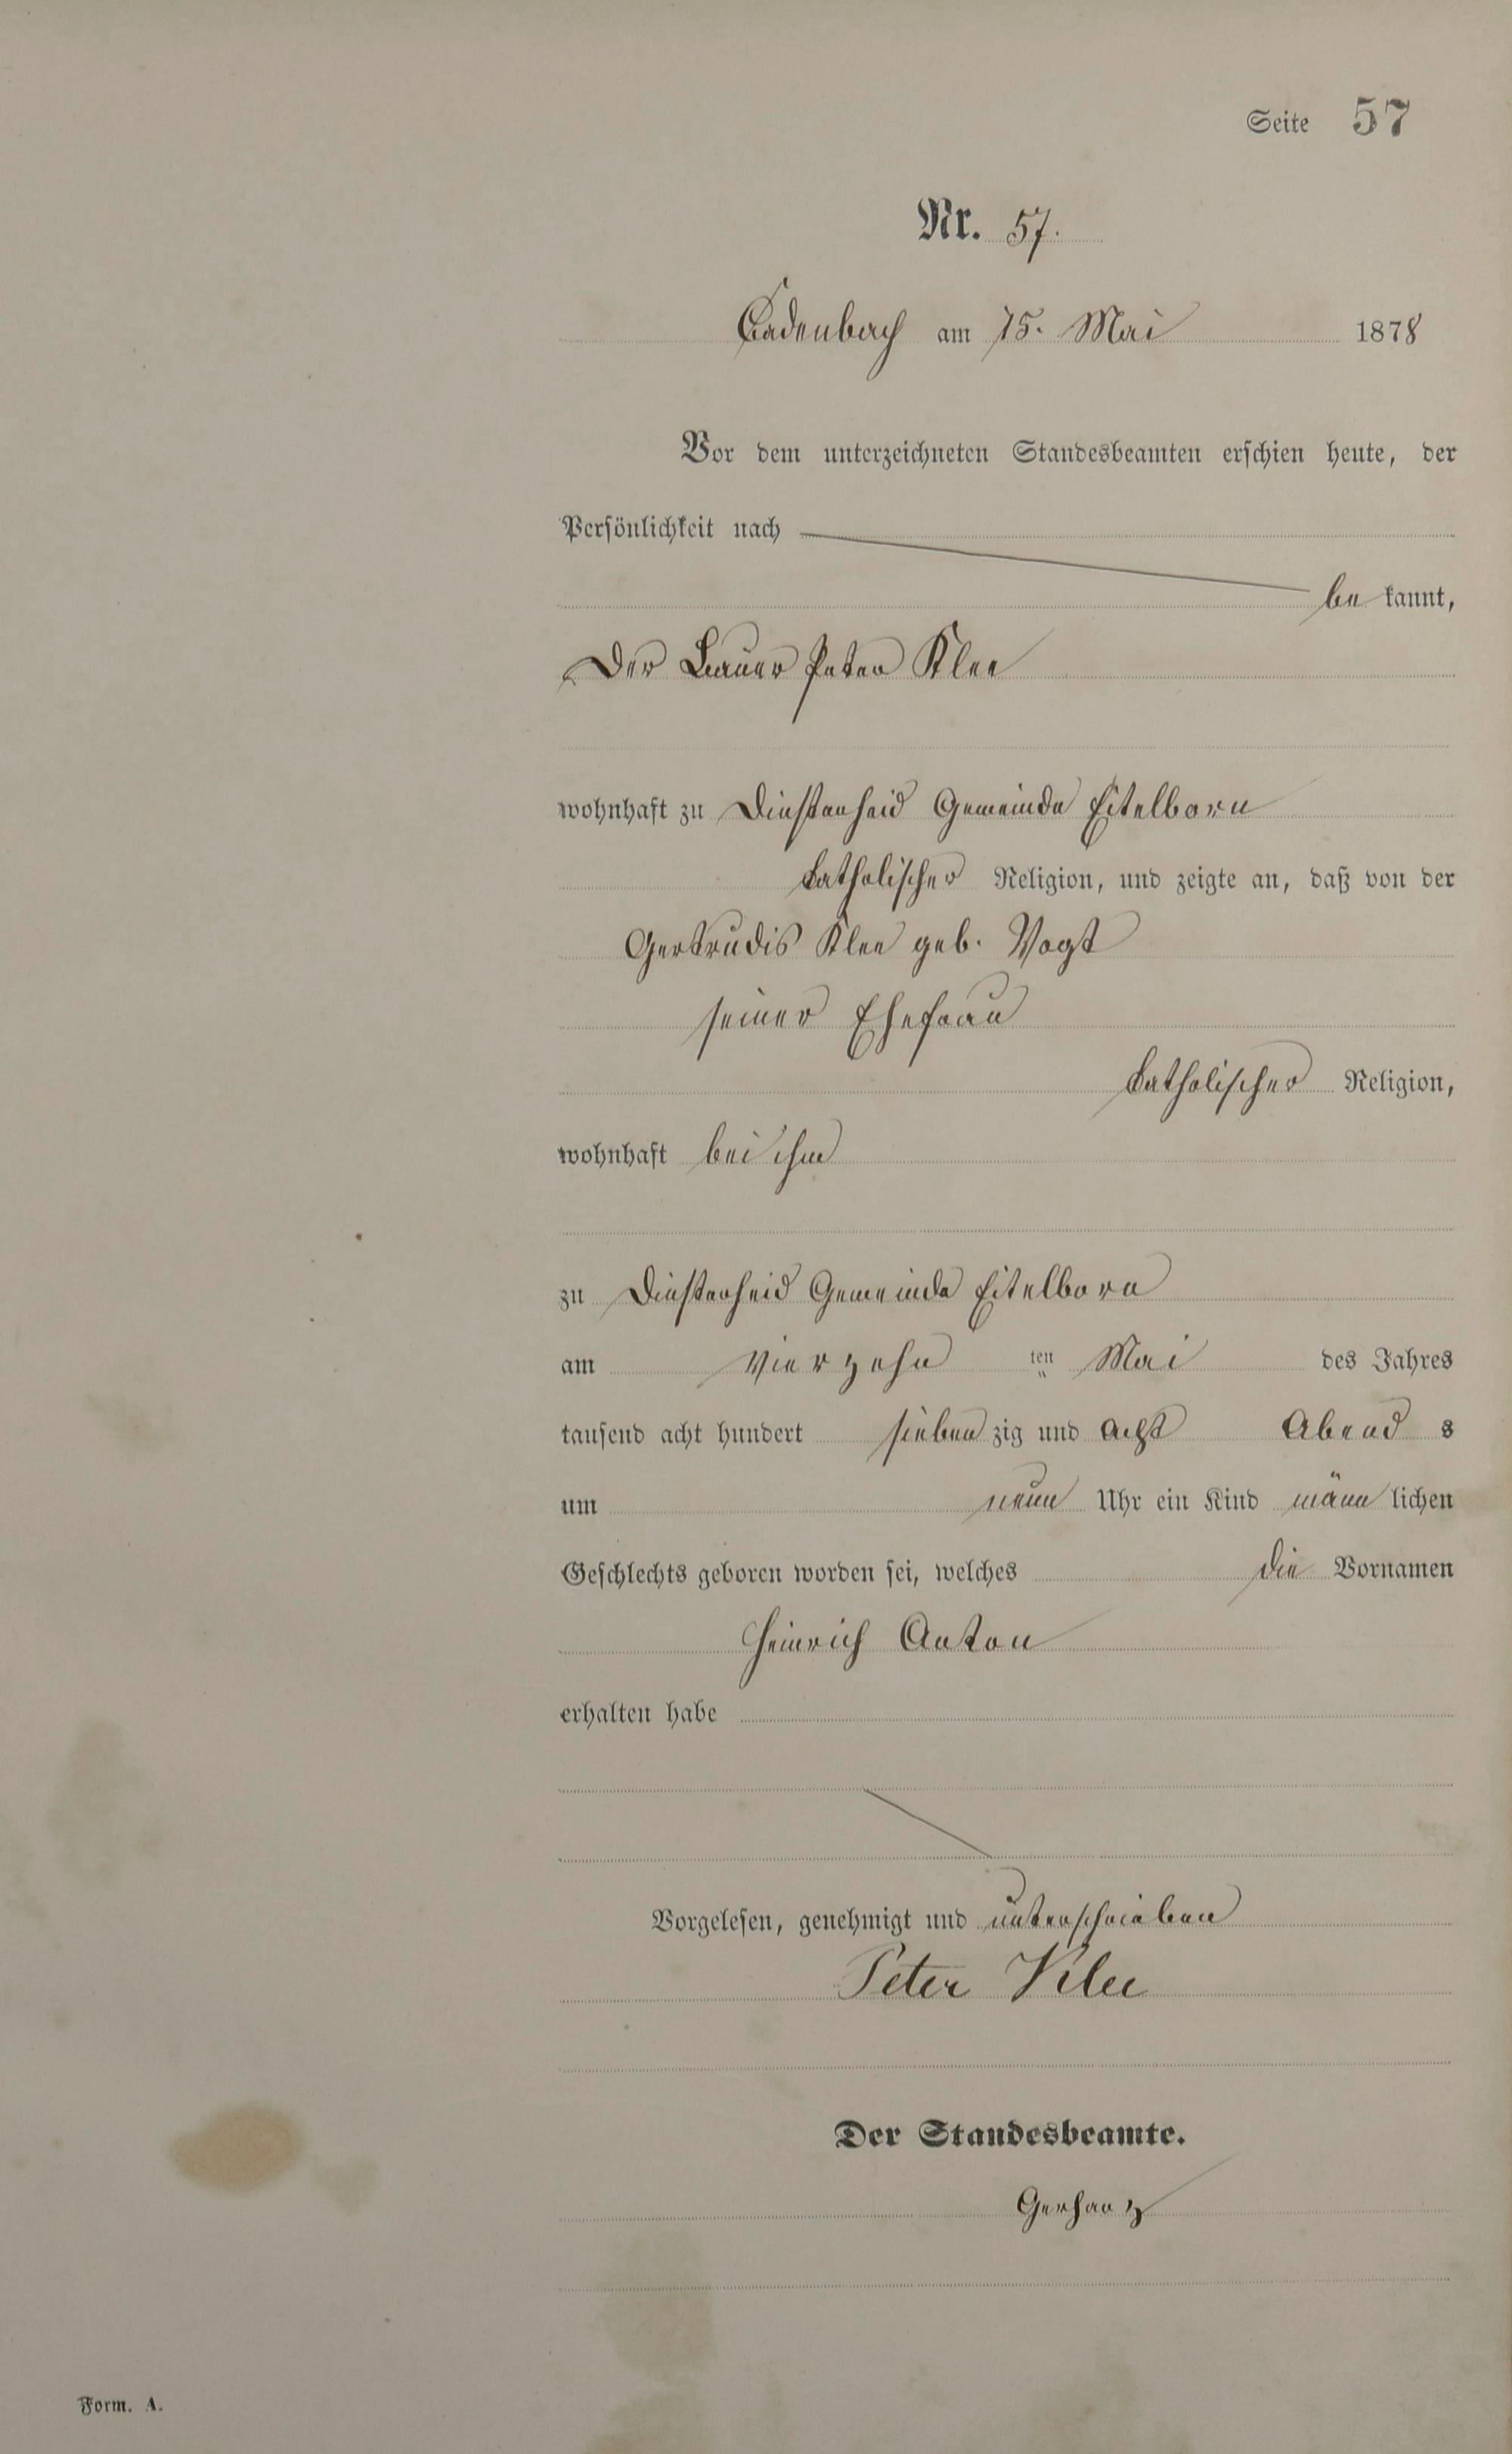 Seite 57
Nr. 57.
Cadenbach am 15. Mai 1878
Vor dem unterzeichneten Standesbeamten erschien heute, der
Persönlichkeit nach
be kannt,
Der Bauer Peter Klee
wohnhaft zu Dinstenheid Gemeinde Eitelborn
katholischer Religion, und zeigte an, daß von der
Gertrudis Klee geb. Vogt
seiner Ehefrau
katholischer Religion,
wohnhaft bei ihm
zu Dinstenheid Gemeinde Eitelborn
am vierzehn ten Mai des Jahres
tausend acht hundert sieben zig und acht Abend s
um neun Uhr ein Kind männ lichen
Geschlechts geboren worden sei, welches die Vornamen
Heinrich Anton
erhalten habe
Vorgelesen, genehmigt und unterschrieben
Peter Klee
Der Standesbeamte.
Gerharz
Form. A.